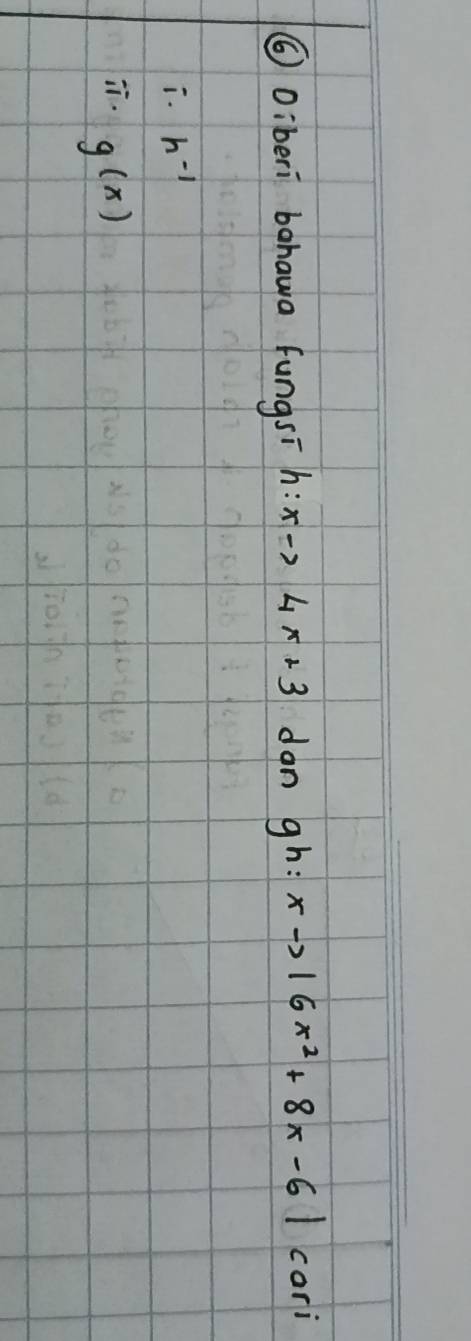 ⑥ Diberi bahawa fungsi h:x → 4x+3 dan gh:x → 16x²+8x-6 | cari
i. h⁻¹
ii. g(x)